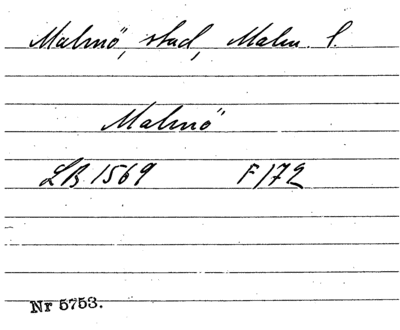 Malmö, stad, Malm. l.
Malmö
LB 1569 F 172
Nr 5753.